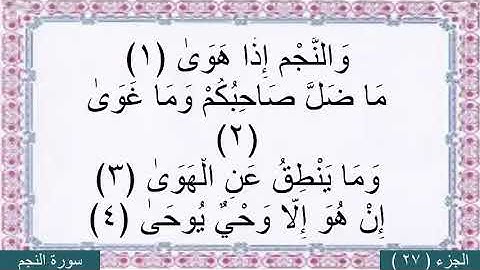 وَالنَّجْم إِذَا هَوَىٰ (١)
مَا ضَلَّ صَاحِبُكُمْ وَمَا غَوَىٰ
(٢)
وَمَا يَنْطِقُ عَنِ الْهَوَىٰ (٣)
إِنْ هُوَ إِلَّا وَحْيٌ يُوحَىٰ (٤)
الجزء ( ٢٧ )
سورة النجم